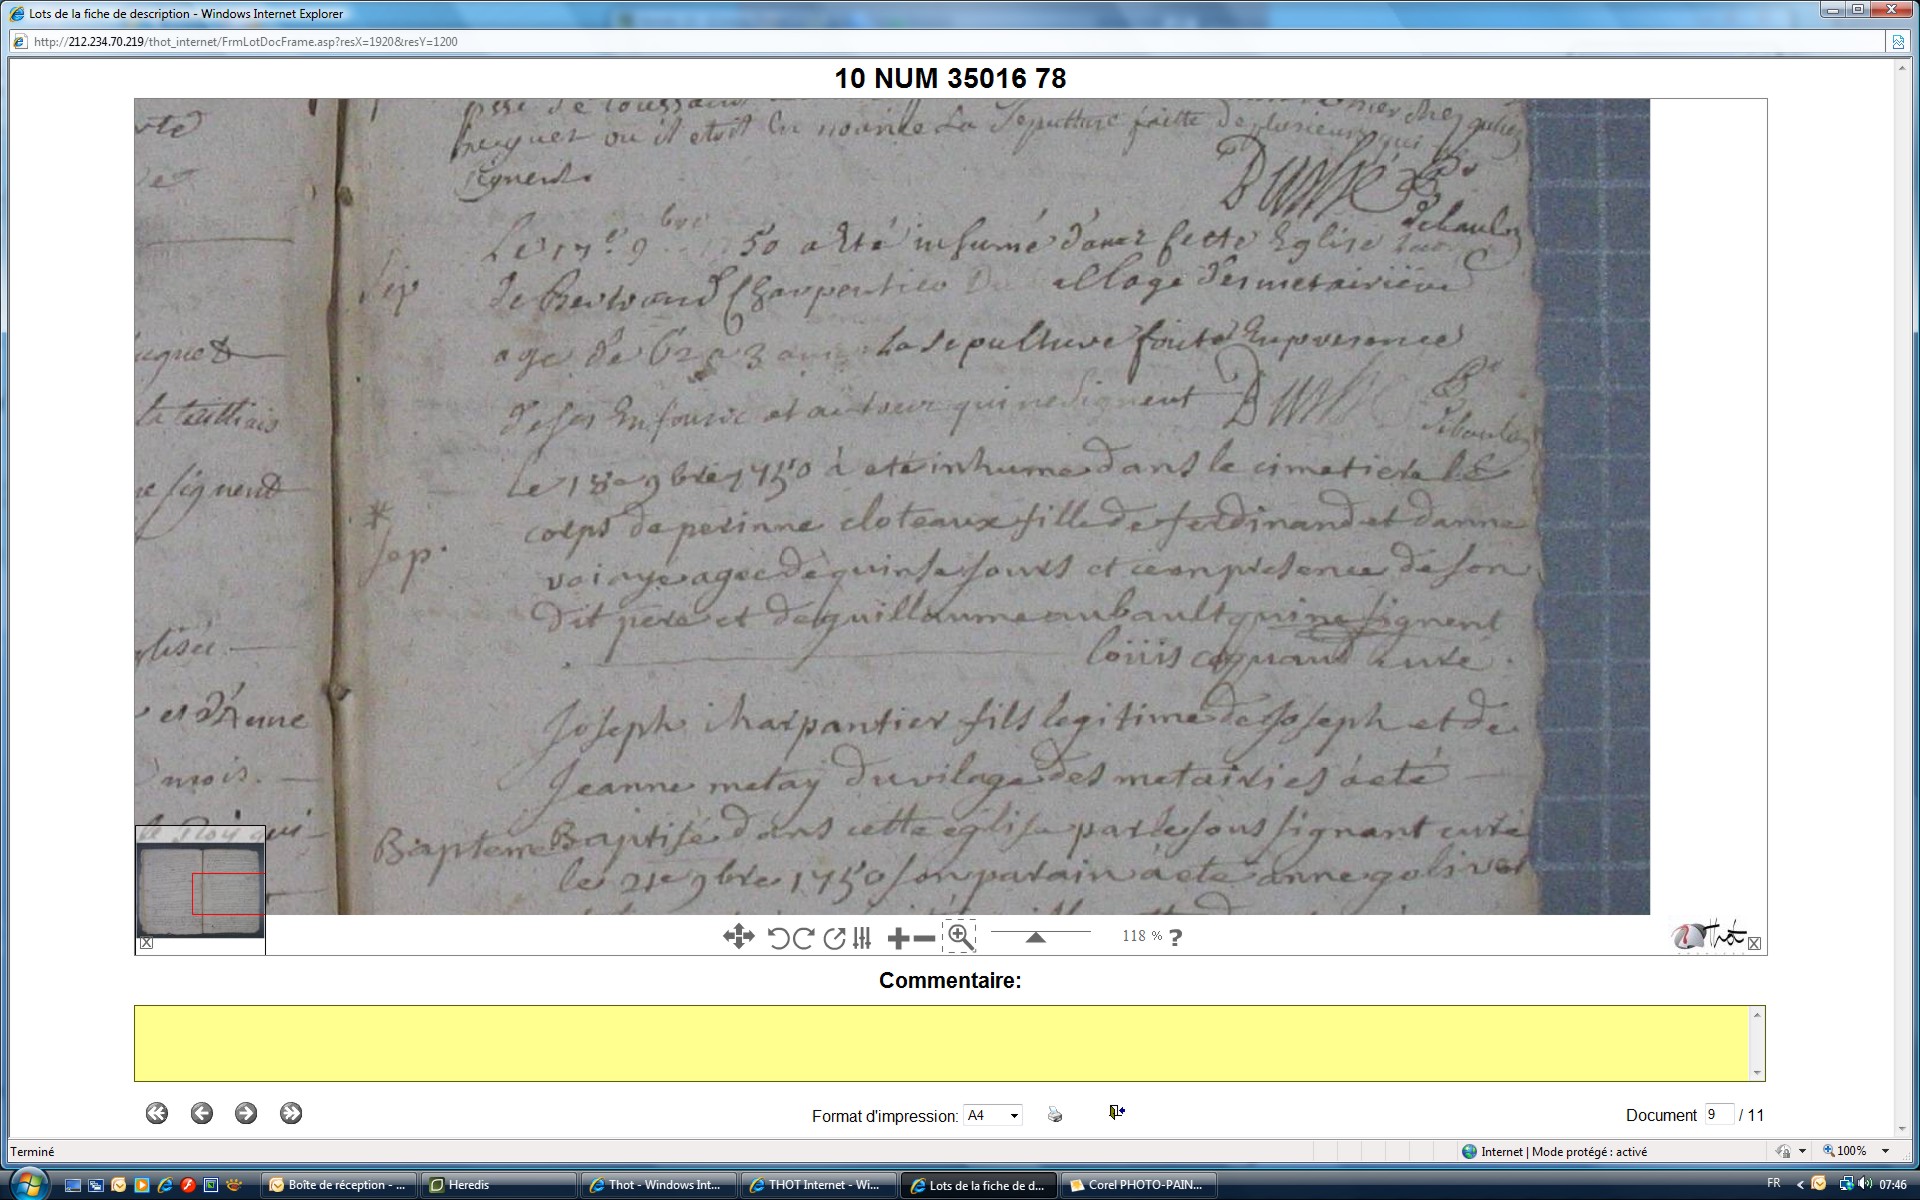 Lots de la fiche de description - Windows Internet Explorer
http://212.234.70.219/thot_internet/FrmLotDocFrame.asp?resX=1920&resY=1200
10 NUM 35016 78
ou il etoit En nourice La Sepulture faitte de plusieurs qui
signent
Le 17e 9bre 1750 a Eté inhumé dans cette Eglise
Sep
de Bertrand Charpentier Du village des metairiëes
age de 62 a 3 ans La sepulture faite En presence
de ses Enfans et autres qui ne signent
Le 18e 9bre 1750 à eté inhumé dans le cimetiere le
*
corps de perinne cloteaux fille de ferdinand et danne
Sep.
voiaye agee de quinse jours et ce en presence de son
dit pere et de guillaume aubault qui ne signent
loüis coquand curé
Joseph charpantier fils legitime de Joseph et de
Jeanne metaÿ du vilage des metairies à eté
Bapteme Baptisé dans cette eglise par le sous signant curé
le 21e 9bre 1750 son parain à eté anne
ne signent
et d'Anne
mois.
le Roy qui
118 % ?
Thot
Commentaire:
Format d'impression: A4
Document 9 / 11
Terminé
Internet | Mode protégé : activé
100%
Boîte de réception - ...
Heredis
Thot - Windows Int...
THOT Internet - Wi...
Lots de la fiche de d...
Corel PHOTO-PAIN...
FR
07:46